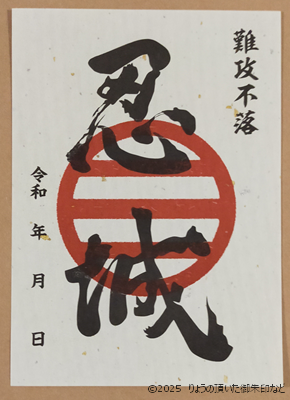 難攻不落
忍城
令和　年　月　日
©2025 りょうの頂いた御朱印など